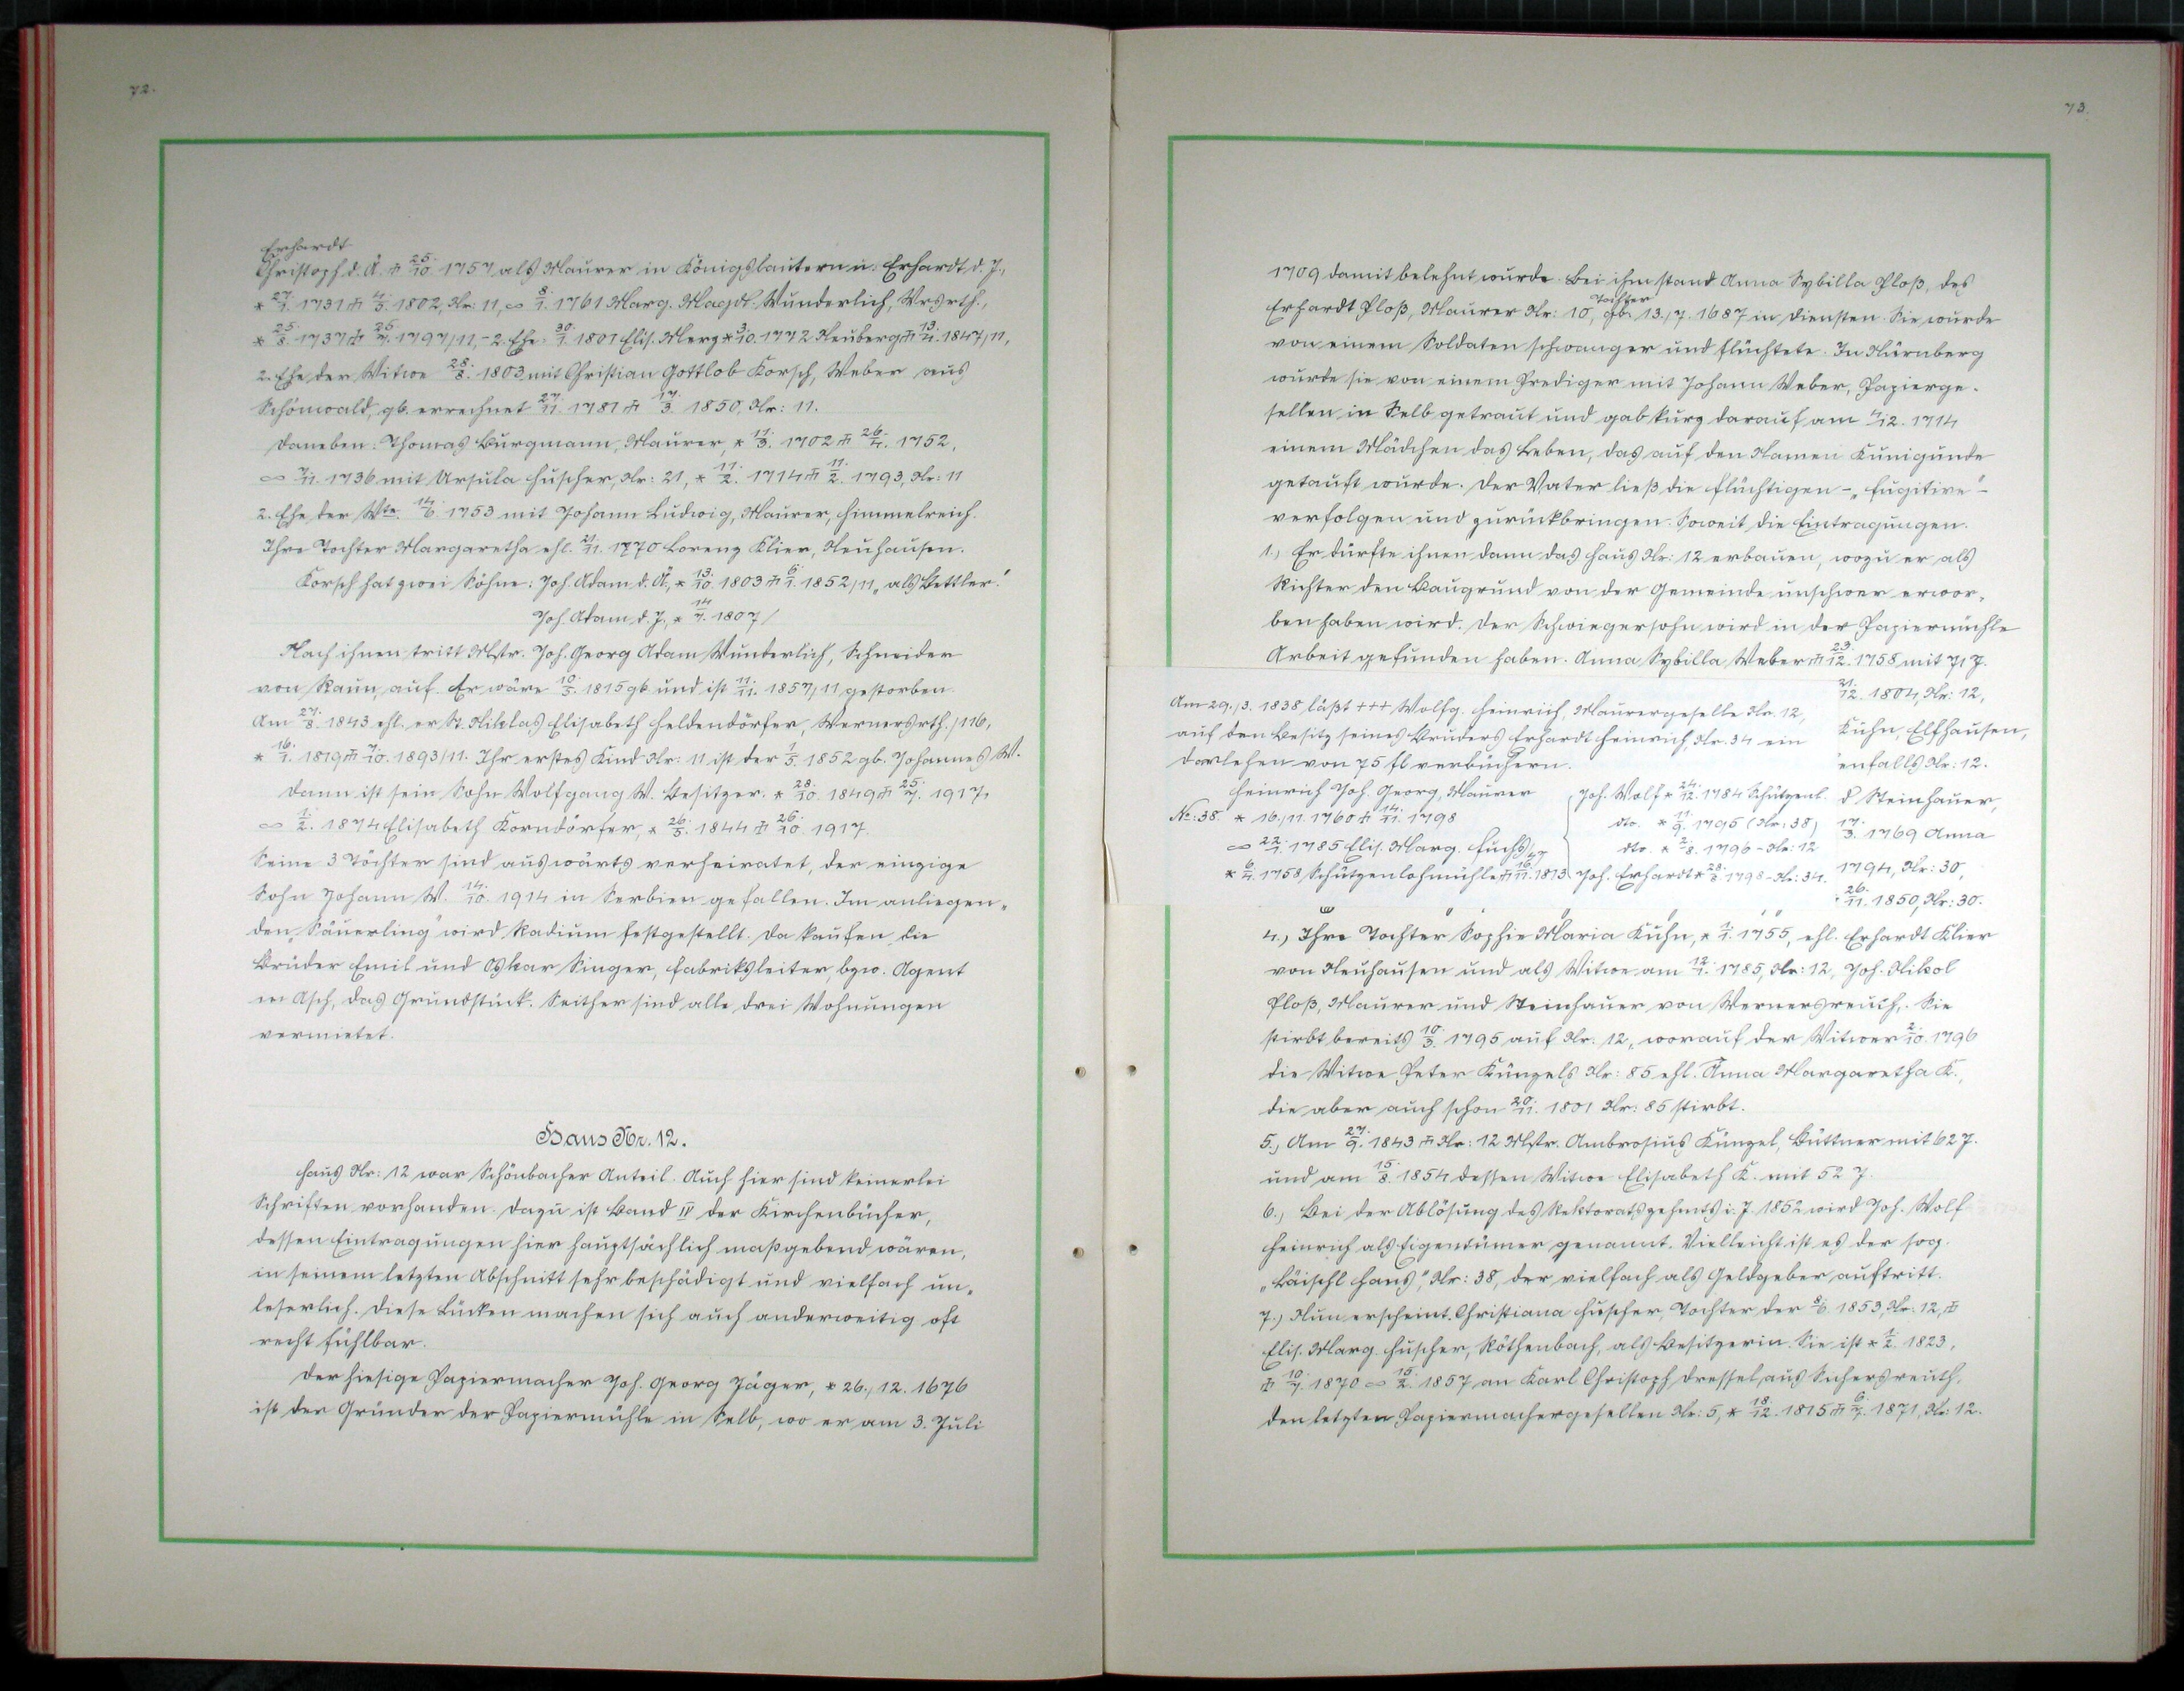 72.
Erhardt
Christoph d. Ä. ⚰ 25./10. 1757 als Maurer in Königslautern u. Erhardt d. J.,
* 27./1. 1731 ⚰ 4./3. 1802, Nr: 11, ∞ 8./1. 1761 Marg. Magdl. Wunderlich, Wrsrth.,
* 25./8. 1737 ⚰ 25./7. 1797/11, - 2. Ehe: 30./1. 1801 Elis. Merz * 3./10. 1772 Neuberg ⚰ 13./4. 1847/11,
2. Ehe der Witwe 28./8. 1803 mit Christian Gottlob Korsch, Weber aus
Schönwald, gb. errechnet 27./11. 1781 ⚰ 17./3. 1850, Nr: 11.
Daneben: Thomas Burgmann, Maurer, * 11./3. 1702 ⚰ 26./4. 1752,
∞ 7./11. 1736 mit Ursula Huscher, Nr: 21, * 11./2. 1714 ⚰ 11./2. 1793, Nr: 11
2. Ehe der Wte. 14./6. 1753 mit Johann Ludwig, Maurer, Himmelreich.
Ihre Tochter Margaretha ehl. 21./11. 1770 Lorenz Klier, Neuhausen.
Korsch hat zwei Söhne: Joh. Adam d. Ä., * 13./10. 1803 ⚰ 6./1. 1852/11 „als Bettler."
Joh. Adam d. J., * 14./7. 1807/
Nach ihnen tritt Mstr. Joh. Georg Adam Wunderlich, Schneider
von Raun, auf. Er wäre 10./5. 1815 gb. und ist 11./11. 1857/11 gestorben.
Am 27./8. 1843 ehl. er St. Niklas Elisabeth Heldendörfer, Wernersrth./116,
* 16./1. 1819 ⚰ 7./10. 1893/11. Ihr erstes Kind Nr: 11 ist der 1./5. 1852 gb. Johannes W.
Dann ist sein Sohn Wolfgang W. Besitzer. * 28./10. 1849 ⚰ 25./7. 1917,
∞ 1./2. 1874 Elisabeth Korndörfer, * 26./5. 1844 ⚰ 26./10. 1917.
Seine 3 Töchter sind auswärts verheiratet, der einzige
Sohn Johann W. 14./10. 1914 in Serbien gefallen. Im anliegen-
den „Säuerling" wird Radium festgestellt. Da kaufen die
Brüder Emil und Oskar Singer, Fabriksleiter, bzw. Agent
in Asch, das Grundstück. Seither sind alle drei Wohnungen
vermietet.
Haus Nr. 12.
Haus Nr: 12 war Schönbacher Anteil. Auch hier sind keinerlei
Schriften vorhanden. Dazu ist Band IV der Kirchenbücher,
dessen Eintragungen hier hauptsächlich maßgebend wären,
in seinem letzten Abschnitt sehr beschädigt und vielfach un-
leserlich. Diese Lücken machen sich auch anderweitig oft
recht fühlbar.
Der hiesige Papiermacher Joh. Georg Jäger, * 26./12. 1676
ist der Gründer der Papiermühle in Selb, wo er am 3. Juli
73.
1709 damit belehnt wurde. Bei ihm stand Anna Sybilla Ploß, des
Erhardt Ploß, Maurer Nr: 10, Tochter gb. 13./7. 1687 in Diensten. Sie wurde
von einem Soldaten schwanger und flüchtete. In Nürnberg
wurde sie von einem Prediger mit Johann Weber, Papierge-
sellen in Selb getraut und gab kurz darauf am 4./12. 1714
einem Mädchen das Leben, das auf den Namen Kunigunde
getauft wurde. Der Vater ließ die Flüchtigen - „fugitive" -
verfolgen und zurückbringen. Soweit die Eintragungen.
1.) Er dürfte ihnen dann das Haus Nr: 12 erbauen, wozu er als
Richter den Baugrund von der Gemeinde unschwer erwor-
ben haben wird. Der Schwiegersohn wird in der Papiermühle
Arbeit gefunden haben. Anna Sybilla Weber ⚰ 23./12. 1758 mit 71 J.
21./12. 1804, Nr: 12,
Am 29./3. 1838 läßt +++ Wolfg. Heinrich, Maurergeselle Nr. 12,
auf den Besitz seines Bruders Erhardt Heinrich, Nr. 34 ein
Kühn, Elfhausen,
Darlehen von 75 fl verbüchern.
enfalls Nr: 12.
Heinrich Joh. Georg, Maurer
Joh. Wolf * 24./12. 1784 Schützenl.
d Steinhauer,
No: 38 * 16./11. 1760 ⚰ 14./11. 1798
dto. * 11./9. 1795 (Nr: 38)
17./3. 1769 Anna
∞ 22./1. 1785 Elis. Marg. Fuchs/47
dto. * 2./8. 1796 - Nr: 12
* 6./4. 1758 Schützenlohmühle ⚰ 16./11. 1813
Joh. Erhardt * 28./8. 1798 - Nr: 34.
1794, Nr: 30,
26./11. 1850, Nr: 30.
4.) Ihre Tochter Sophie Maria Kühn, * 1./1. 1755, ehl. Erhardt Klier
von Neuhausen und als Witwe am 12./1. 1785, Nr: 12, Joh. Nikol
Ploß, Maurer und Steinhauer von Wernersreuth. Sie
stirbt bereits 10./3. 1795 auf Nr. 12, worauf der Witwer 2./10. 1796
die Witwe Peter Künzels Nr: 85 ehl. Anna Margaretha K.,
die aber auch schon 20./11. 1801 Nr: 85 stirbt.
5.) Am 27./9. 1843 ⚰ Nr: 12 Mstr. Ambrosius Künzel, Büttner mit 62 J.
und am 15./8. 1854 dessen Witwe Elisabeth K. mit 52 J.
6.) Bei der Ablösung des Rektoratszehents i. J. 1852 wird Joh. Wolf
Heinrich als Eigentümer genannt. Vielleicht ist es der sog.
„Läischl Hans", Nr: 38, der vielfach als Geldgeber auftritt.
7.) Nun erscheint Christiana Huscher, Tochter der 8./6. 1853, Nr: 12, ⚰
Elis. Marg. Huscher, Röthenbach, als Besitzerin. Sie ist * 1./2. 1823,
⚰ 10./7. 1870 ∞ 15./2. 1857 an Karl Christoph Dressel aus Sichersreuth,
den letzten Papiermachergesellen Nr: 5, * 18./12. 1815 ⚰ 6./7. 1871, Nr: 12.